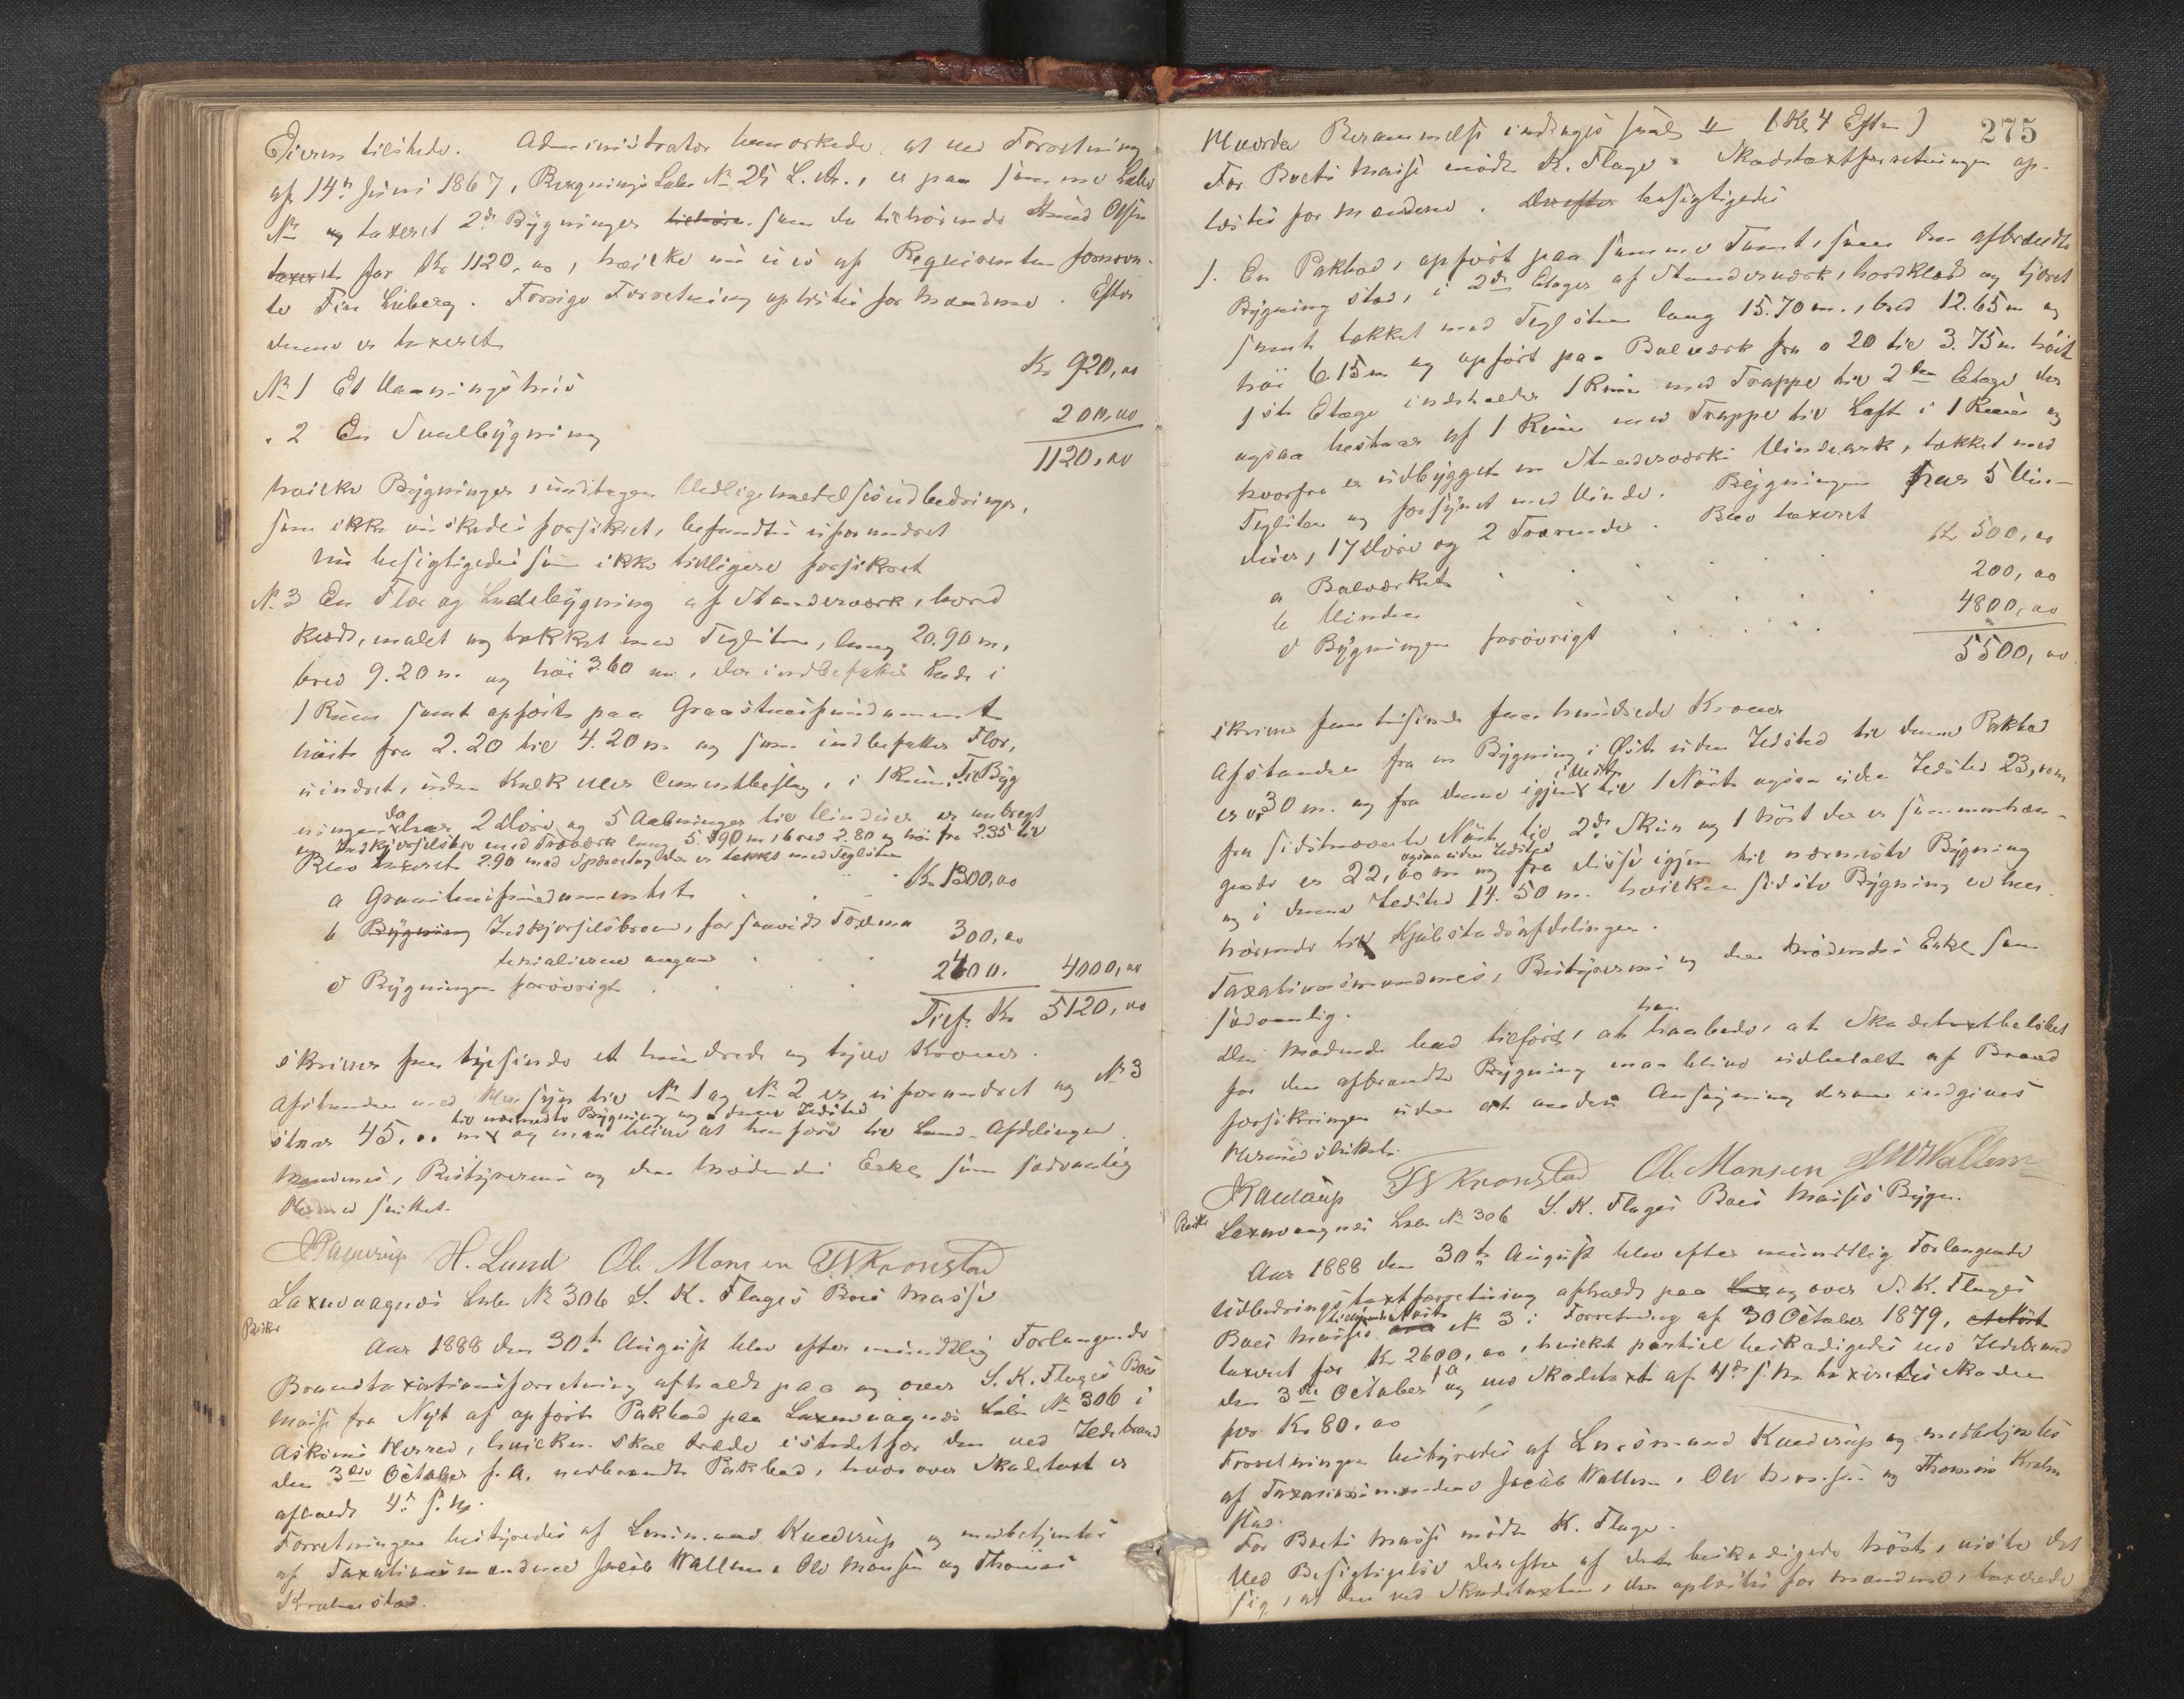 Eieren tilstede. Administrator bemærkede, at ved Forretning
af 14de Juni 1867, Bygnings Løbe No 25 L. A., er paa samme Løbe
No og taxeret 2de Bygninger som da tilhørende Olsen
taxeret for Kr 1120,00, hvilke nu eies af Reqvirenten fornævn-
te Liberg. Forrige Forretning oplæstes for Mændene. Efter
denne er taxeret
No 1 Et Vaaningshus Kr 920,00
" 2 En Svalbygning 200,00
1120,00
hvilke Bygninger, undtagen Vedligeholdelsesudbedringer,
som ikke ønskedes forsikret, befandtes uforandret
Nu besigtigedes som ikke tidligere forsikret
No 3 En Flor og Ladebygning af Standerværk, bord
klædt, malet og tækket med Teglsten, lang 20.90 m,
bred 9.20 m. og høi 3.60 m, der indbefatter Lade i
1 Rum samt opført paa Graastensfundament
høit fra 2.20 til 4.20 m og som indbefatter Flor,
uindret, uden Kalk eller Cementbeslag, i 1 Rum. Til Byg
ningen hører 2 Døre og 5 Aabninger til Vinduer er anbragt
en Indkjørselsbro med Træværk lang 5.90 m, bred 2.80 og høi fra 2.35 til
Blev taxeret 2.90 med Spærretag der er tækket med Teglsten
a Graastensfundamentet Kr 1300,00
b Bygning Indkjørselsbroen, forsaavidt Træma
terialierne angaar 300,00
c Bygningen forøvrigt 2400. 4000,00
Tils. Kr 5120,00
skriver fem tusinde et hundrede og tyve Kroner.
Afstanden med Hensyn til No 1 og No 2 er uforandret og No 3
til nærmeste Bygning og denne Ildsted
staar 45.00 m og maa blive at henføre til Land-Afdelingen
Mændenes, Bestyrerens og den Mødendes Enke som sædvanlig
Hermed sluttet.
H. Lund Ole Monsen TS Kronstad
Laxevaagnæs Løbe No 306 S. K. Flages Boes Masse
Aar 1888 den 30te August blev efter mundtlig Forlangende
Brandtaxationsforretning afholdt paa og over S. K. Flages Boes
Masse fra Nyt af opført Pakbod paa Laxevaagnæs Løbe No 306 i
Askøens Herred, hvilken skal træde istedetfor den ved Ildebrand
den 3die October f. A. nedbrændte Pakbod, hvorover Skadetaxt er
afholdt 4de s. M.
Forretningen bestyredes af Lensmand Knudsen og medbetjentes
af Taxationsmændene Jacob Wallem, Ole Monsen og Thomas
Kronstad.
275
Hvorda Berammelse indtages (Kl 4 Eftm)
For Boets Masse mødte K. Flage. Skadetaxtforretningen op-
læstes for Mændene. Derefter besigtigedes
1. En Pakbod, opført paa samme Tomt, som den afbrændte
Bygning stod, i 2de Etager af Standerværk, bordklædt og tjæret
samt tækket med Teglsten lang 15.70 m., bred 12.65 m og
høi 6.15 m og opført paa Bolværk fra 0 20 til 3.75 m høit
1ste Etage indeholder 1 Rum med Trappe til 2den Etage der
ogsaa bestaar af 1 Rum med Trappe til Loft i 1 Rum og
hvorfra er udbygget en Standerværks Vindeark, tækket med
Teglsten og forsynet med Vinde. Bygningen har 5 Vin-
duer, 17 Døre og 2 Tværender. Blev taxeret
a Bolværket Kr 500,00
b Vinden 200,00
c Bygningen forøvrigt 4800,00
5500,00
skriver fem tusinde fem hundrede Kroner
Afstanden fra en Bygning i Øst uden Ildsted til denne Pakbod
er 0.30 m. og fra denne igjen til 1 Nøst ogsaa uden Ildsted 23,00 m
fra sidstnævnte Nøst til 2de Skur og 1 Nøst der er sammenhæn-
gende er 22,00 m og fra disse igjen til nærmeste Bygning
og i denne Ildsted 14.50 m. hvilken sidste Bygning er hen
hørende til Kjøbstadsafdelingen.
Taxationsmændenes, Bestyrerens og den mødendes Enke som
sædvanlig.
Den Mødende bad tilført, at han haabede, at Skadetaxtbeløbet
for den afbrændte Bygning maa blive udbetalt af Brand
forsikringen uden at anden Ansøgning derom indgives
Hermed sluttet.
TS Kronstad Ole Monsen JW Wallem
Laxevaagnæs Løbe No 306 S. K. Flages Boes Masses Bygn.
Aar 1888 den 30te August blev efter mundtlig Forlangende
Udbedrings taxtforretning afholdt paa og over S. K. Flages
Boes Masses No 3 i Forretning af 30 October 1879,
taxeret for Kr 2600,00, hvilket partiel beskadigedes ved Ildebrand
den 3die October f A og ved Skadetaxt af 4de s. M. taxeredes Skaden
for Kr 80.00
Forretningen bestyredes af Lensmand Knudsen og medbetjentes
af Taxationsmændene Jacob Wallem, Ole Monsen og Thomas Kron
stad.
For Boets Masse mødte K. Flage.
Ved Besigtigelse derefter af det beskadigede Nøst, viste det
sig, at den ved Skadetaxten, der oplæstes for Mændene, taxerede